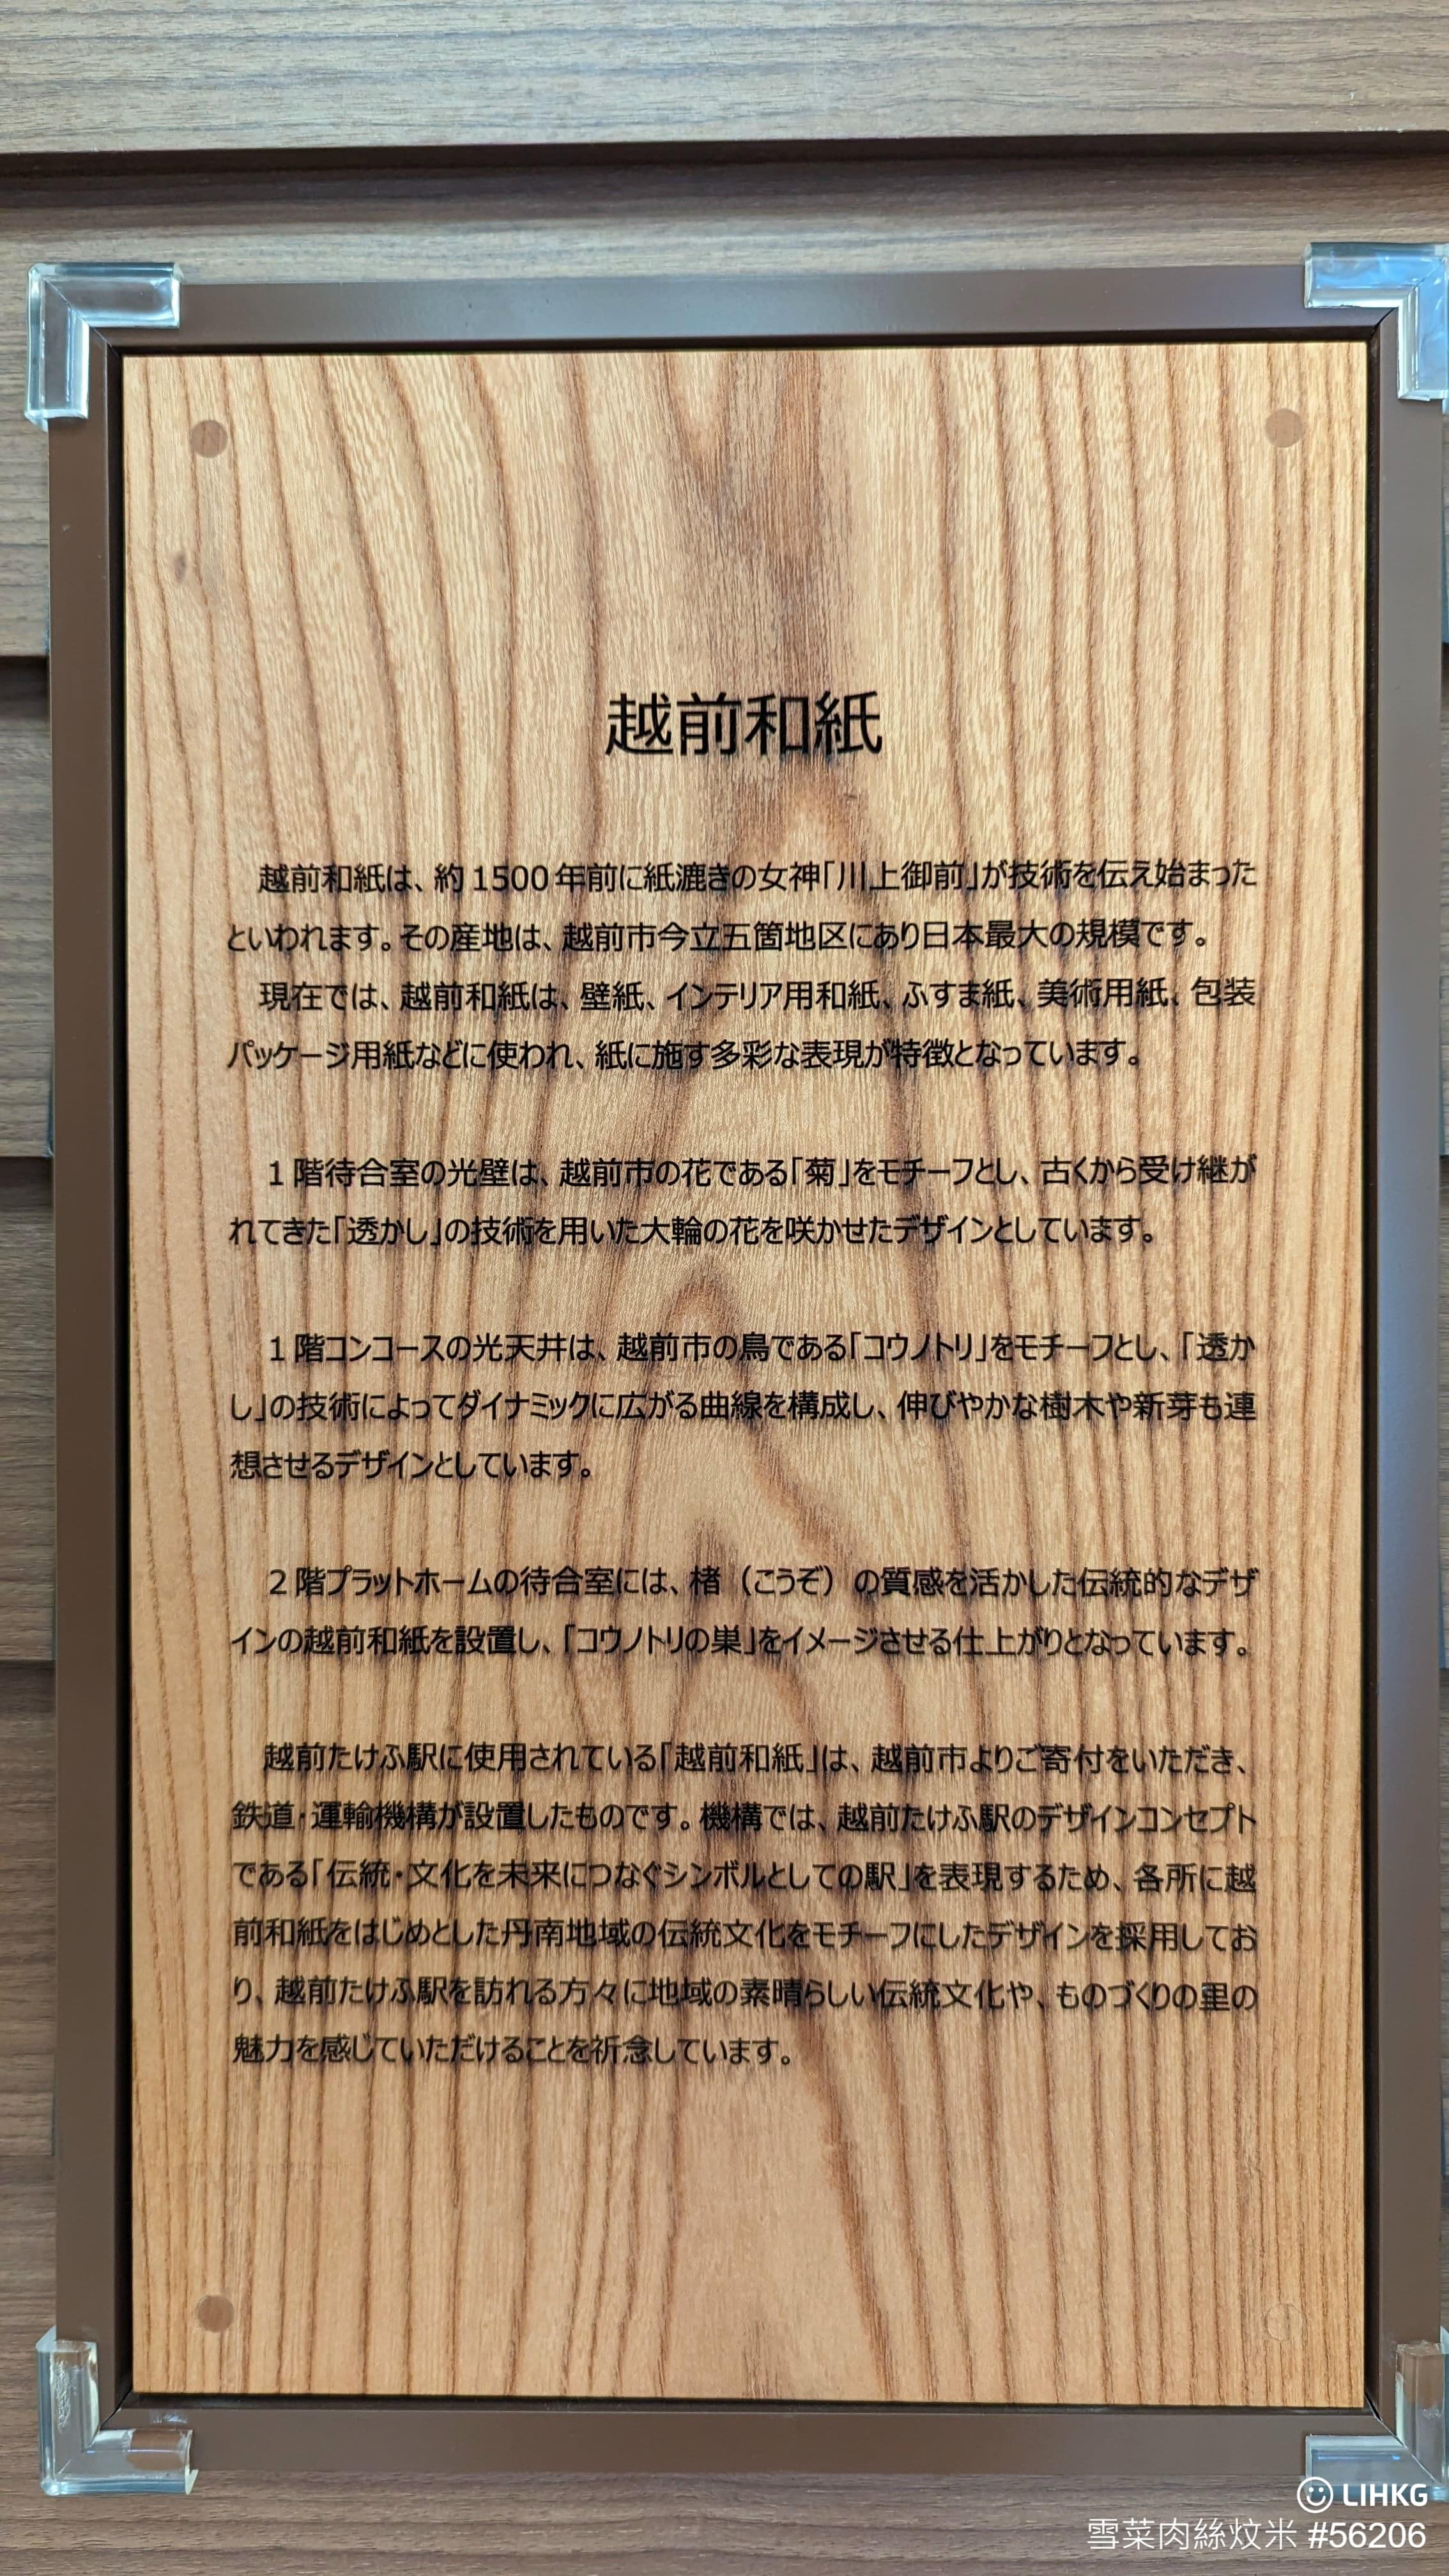 越前和紙
越前和紙は、約1500年前に紙漉きの女神「川上御前」が技術を伝え始まった
といわれます。その産地は、越前市今立五箇地区にあり日本最大の規模です。
現在では、越前和紙は、壁紙、インテリア用和紙、ふすま紙、美術用紙、包装
パッケージ用紙などに使われ、紙に施す多彩な表現が特徴となっています。
1階待合室の光壁は、越前市の花である「菊」をモチーフとし、古くから受け継が
れてきた「透かし」の技術を用いた大輪の花を咲かせたデザインとしています。
1階コンコースの光天井は、越前市の鳥である「コウノトリ」をモチーフとし、「透か
し」の技術によってダイナミックに広がる曲線を構成し、伸びやかな樹木や新芽も連
想させるデザインとしています。
2階プラットホームの待合室には、楮（こうぞ）の質感を活かした伝統的なデザ
インの越前和紙を設置し、「コウノトリの巣」をイメージさせる仕上がりとなっています。
越前たけふ駅に使用されている「越前和紙」は、越前市よりご寄付をいただき、
鉄道・運輸機構が設置したものです。機構では、越前たけふ駅のデザインコンセプト
である「伝統・文化を未来につなぐシンボルとしての駅」を表現するため、各所に越
前和紙をはじめとした丹南地域の伝統文化をモチーフにしたデザインを採用してお
り、越前たけふ駅を訪れる方々に地域の素晴らしい伝統文化や、ものづくりの里の
魅力を感じていただけることを祈念しています。
LIHKG
雪菜肉絲炆米 #56206